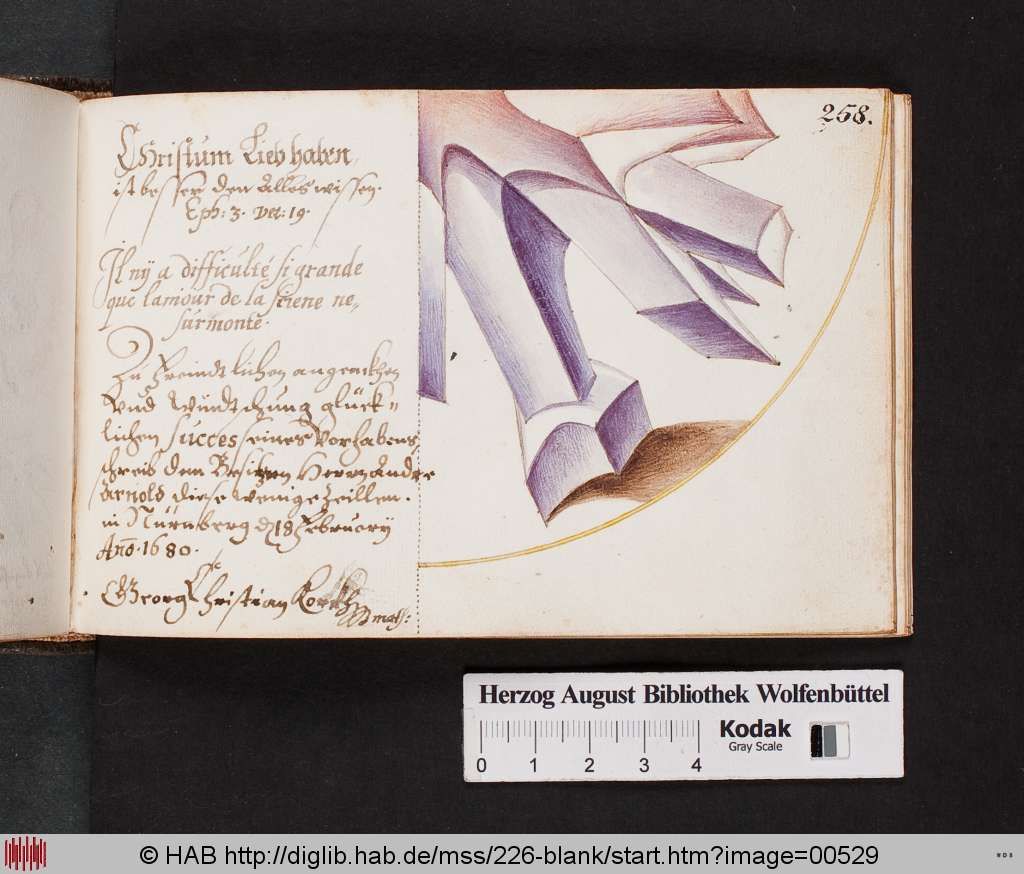 258.
Christum Lieb haben,
ist besser den Alles wissen.
Eph: 3. Ver: 19.
Il nÿ a difficulté si grande
que lamour de la sciene ne,
surmonte.
Zu Freindtlichen angenckhen
Vnd Wündtschung glück=
lichen Succes seines Vorhabens
schreib dem Besitzern Herrn Andre
Arnold diese wenige Zeillen.
in Nürnberg d 18 Februarÿ
Año. 1680.
Georg Christian
Herzog August Bibliothek Wolfenbüttel
0 1 2 3 4
Kodak
Gray Scale
© HAB http://diglib.hab.de/mss/226-blank/start.htm?image=00529
WDB